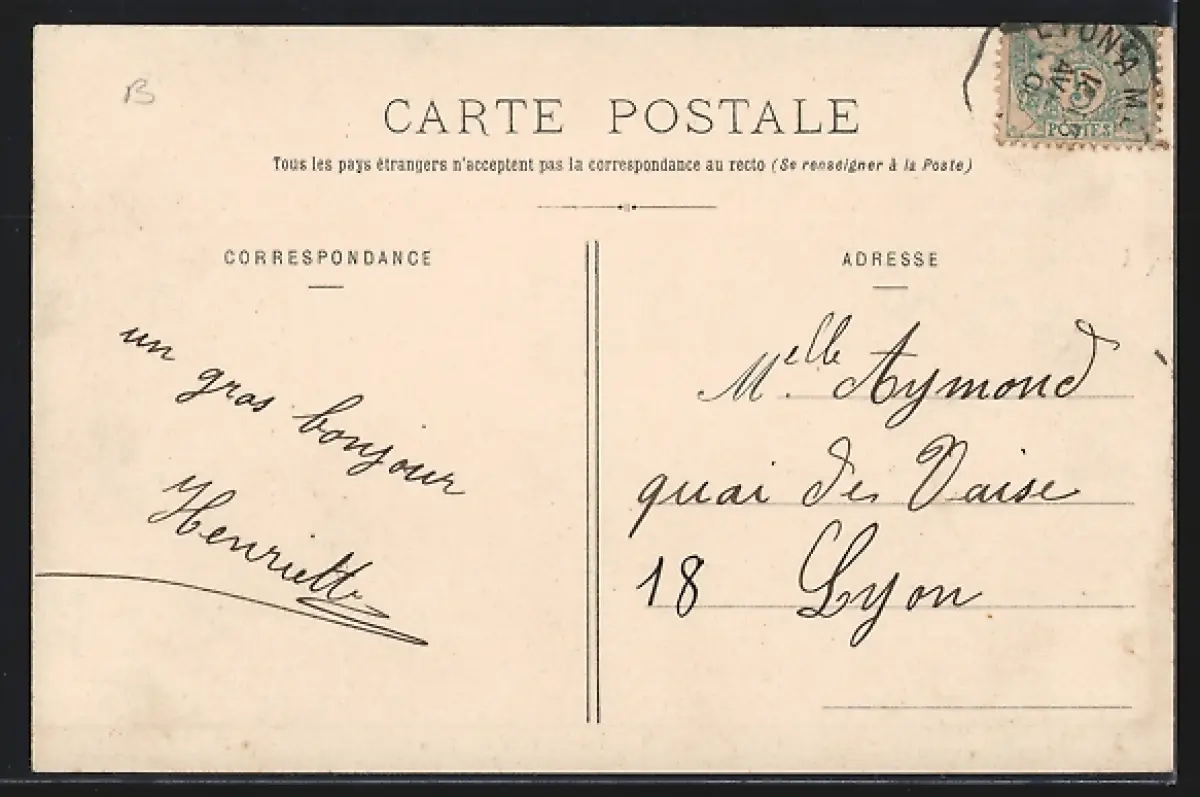 B
LYON A M
AV
5
POSTES
CARTE POSTALE
Tous les pays étrangers n'acceptent pas la correspondance au recto (Se renseigner à la Poste)
CORRESPONDANCE
un gros bonjour
Henriette
ADRESSE
Melle. Aymond
quai de Vaise
18 Lyon